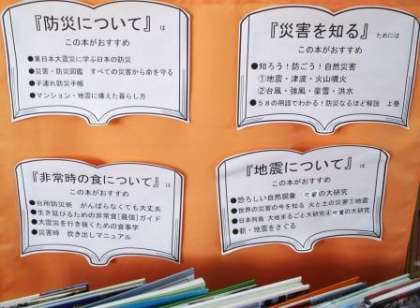 『防災について』は
この本がおすすめ
●東日本大震災に学ぶ日本の防災
●災害・防災図鑑 すべての災害から命を守る
●子連れ防災手帳
●マンション・地震に備えた暮らし方
『災害を知る』ためには
この本がおすすめ
●知ろう!防ごう!自然災害
①地震・津波・火山噴火
②台風・強風・豪雪・洪水
●58の用語でわかる!防災なるほど解説 上巻
『非常時の食について』は
この本がおすすめ
●台所防災術 がんばらなくても大丈夫
●生き延びるための非常食[最強]ガイド
●大震災を生き抜くための食事学
●災害時 炊き出しマニュアル
『地震について』は
この本がおすすめ
●恐ろしい自然現象 の大研究
●世界の災害の今を知る 火と土の災害①地震
●日本列島 大地まるごと大研究④ の大研究
●新・地震をさぐる